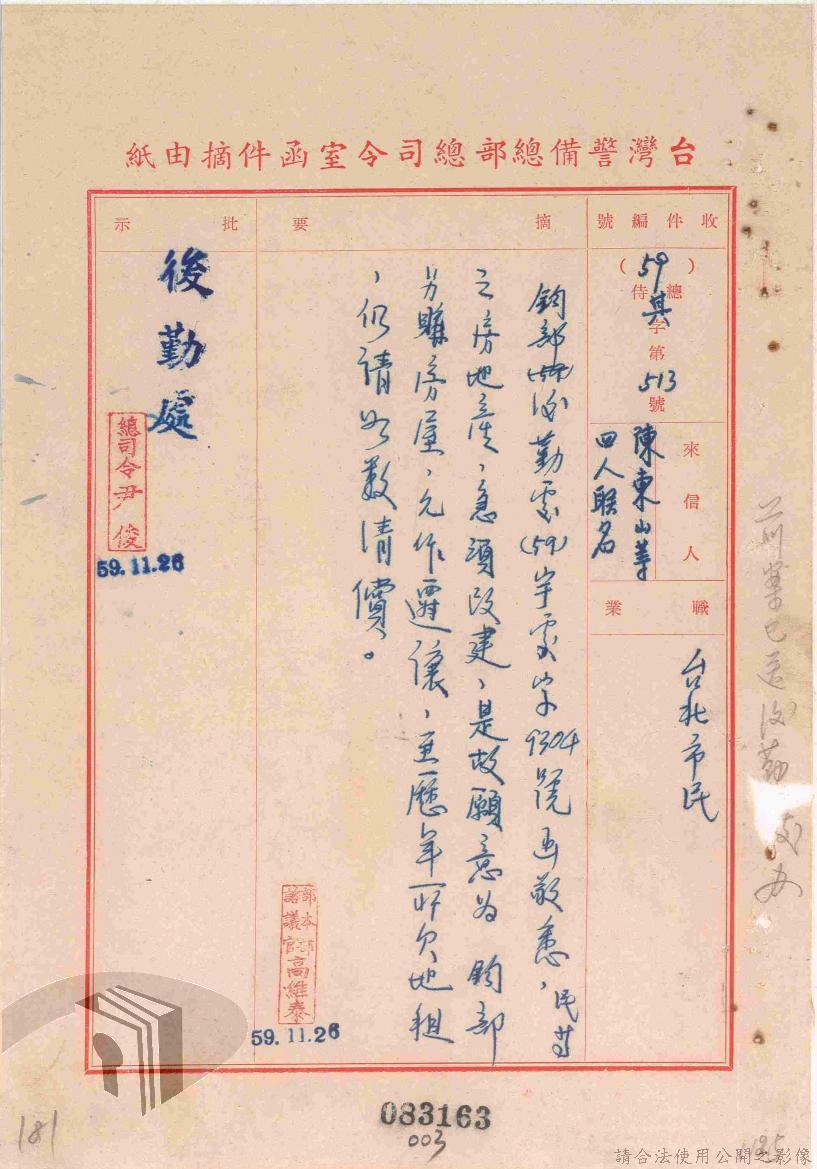 台灣警備總部總司令室函件摘由紙
收件編號
(59)總侍其字第513號
來信人
陳東山等
四人聯名
職業
台北市民
摘要
鈞部後勤處(59)宇處字9304號函敬悉，民等
之房地產，急須改建，是故願意為 鈞部
另購房屋，允作遷讓，至歷年所欠地租
，仍請如數清償。
部本部
諮議官高維泰
59.11.26
批示
後勤處
總司令尹俊
59.11.26
前案已送後勤處办
083163
003
181
請合法使用公開之影像